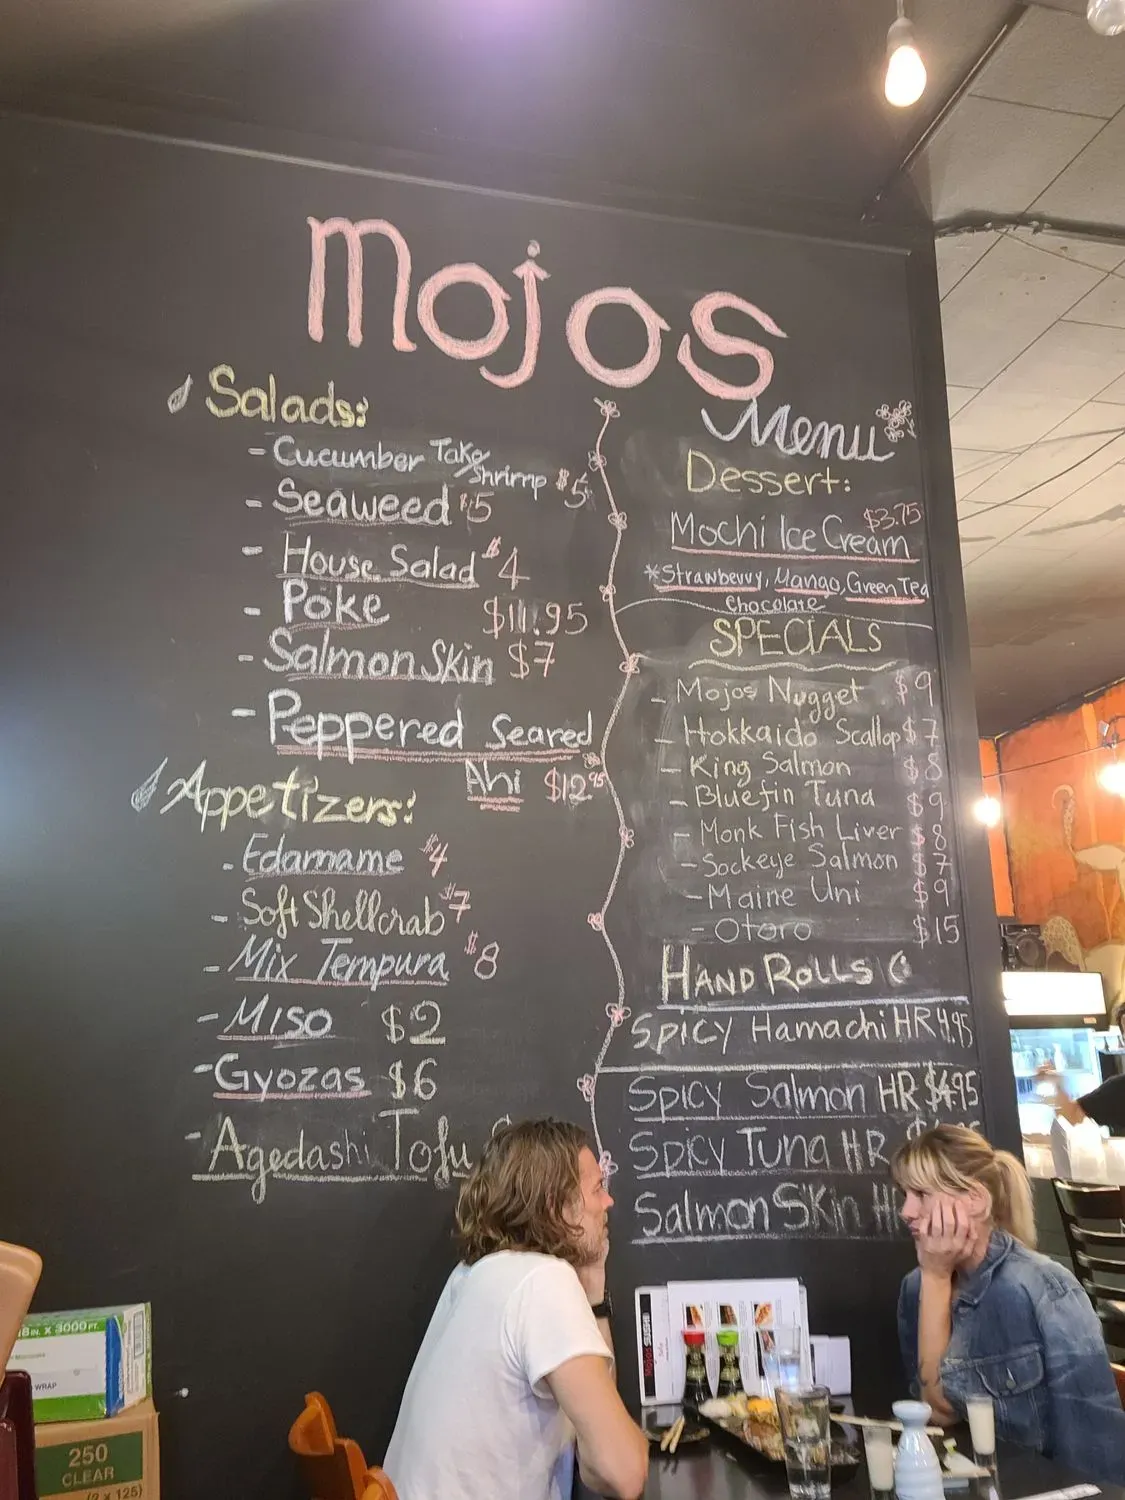 mojos
Menu
Salads:
- Cucumber Tako/Shrimp $5
- Seaweed $5
- House Salad $4
- Poke $11.95
- Salmon Skin $7
- Peppered Seared
Ahi $12.95
Appetizers:
- Edamame $4
- Soft Shellcrab $7
- Mix Tempura $8
- Miso $2
- Gyozas $6
- Agedashi Tofu
Dessert:
Mochi Ice Cream $3.75
*Strawberry, Mango, Green Tea
Chocolate
SPECIALS
- Mojos Nugget $9
- Hokkaido Scallop $7
- King Salmon $8
- Bluefin Tuna $9
- Monk Fish Liver $8
- Sockeye Salmon $7
- Maine Uni $9
- Otoro $15
HAND ROLLS
Spicy Hamachi HR 4.95
Spicy Salmon HR $4.95
Spicy Tuna HR
Salmon Skin
18 IN. X 3000 FT.
WRAP
250
CLEAR
(2 x 125)
Mojos SUSHI